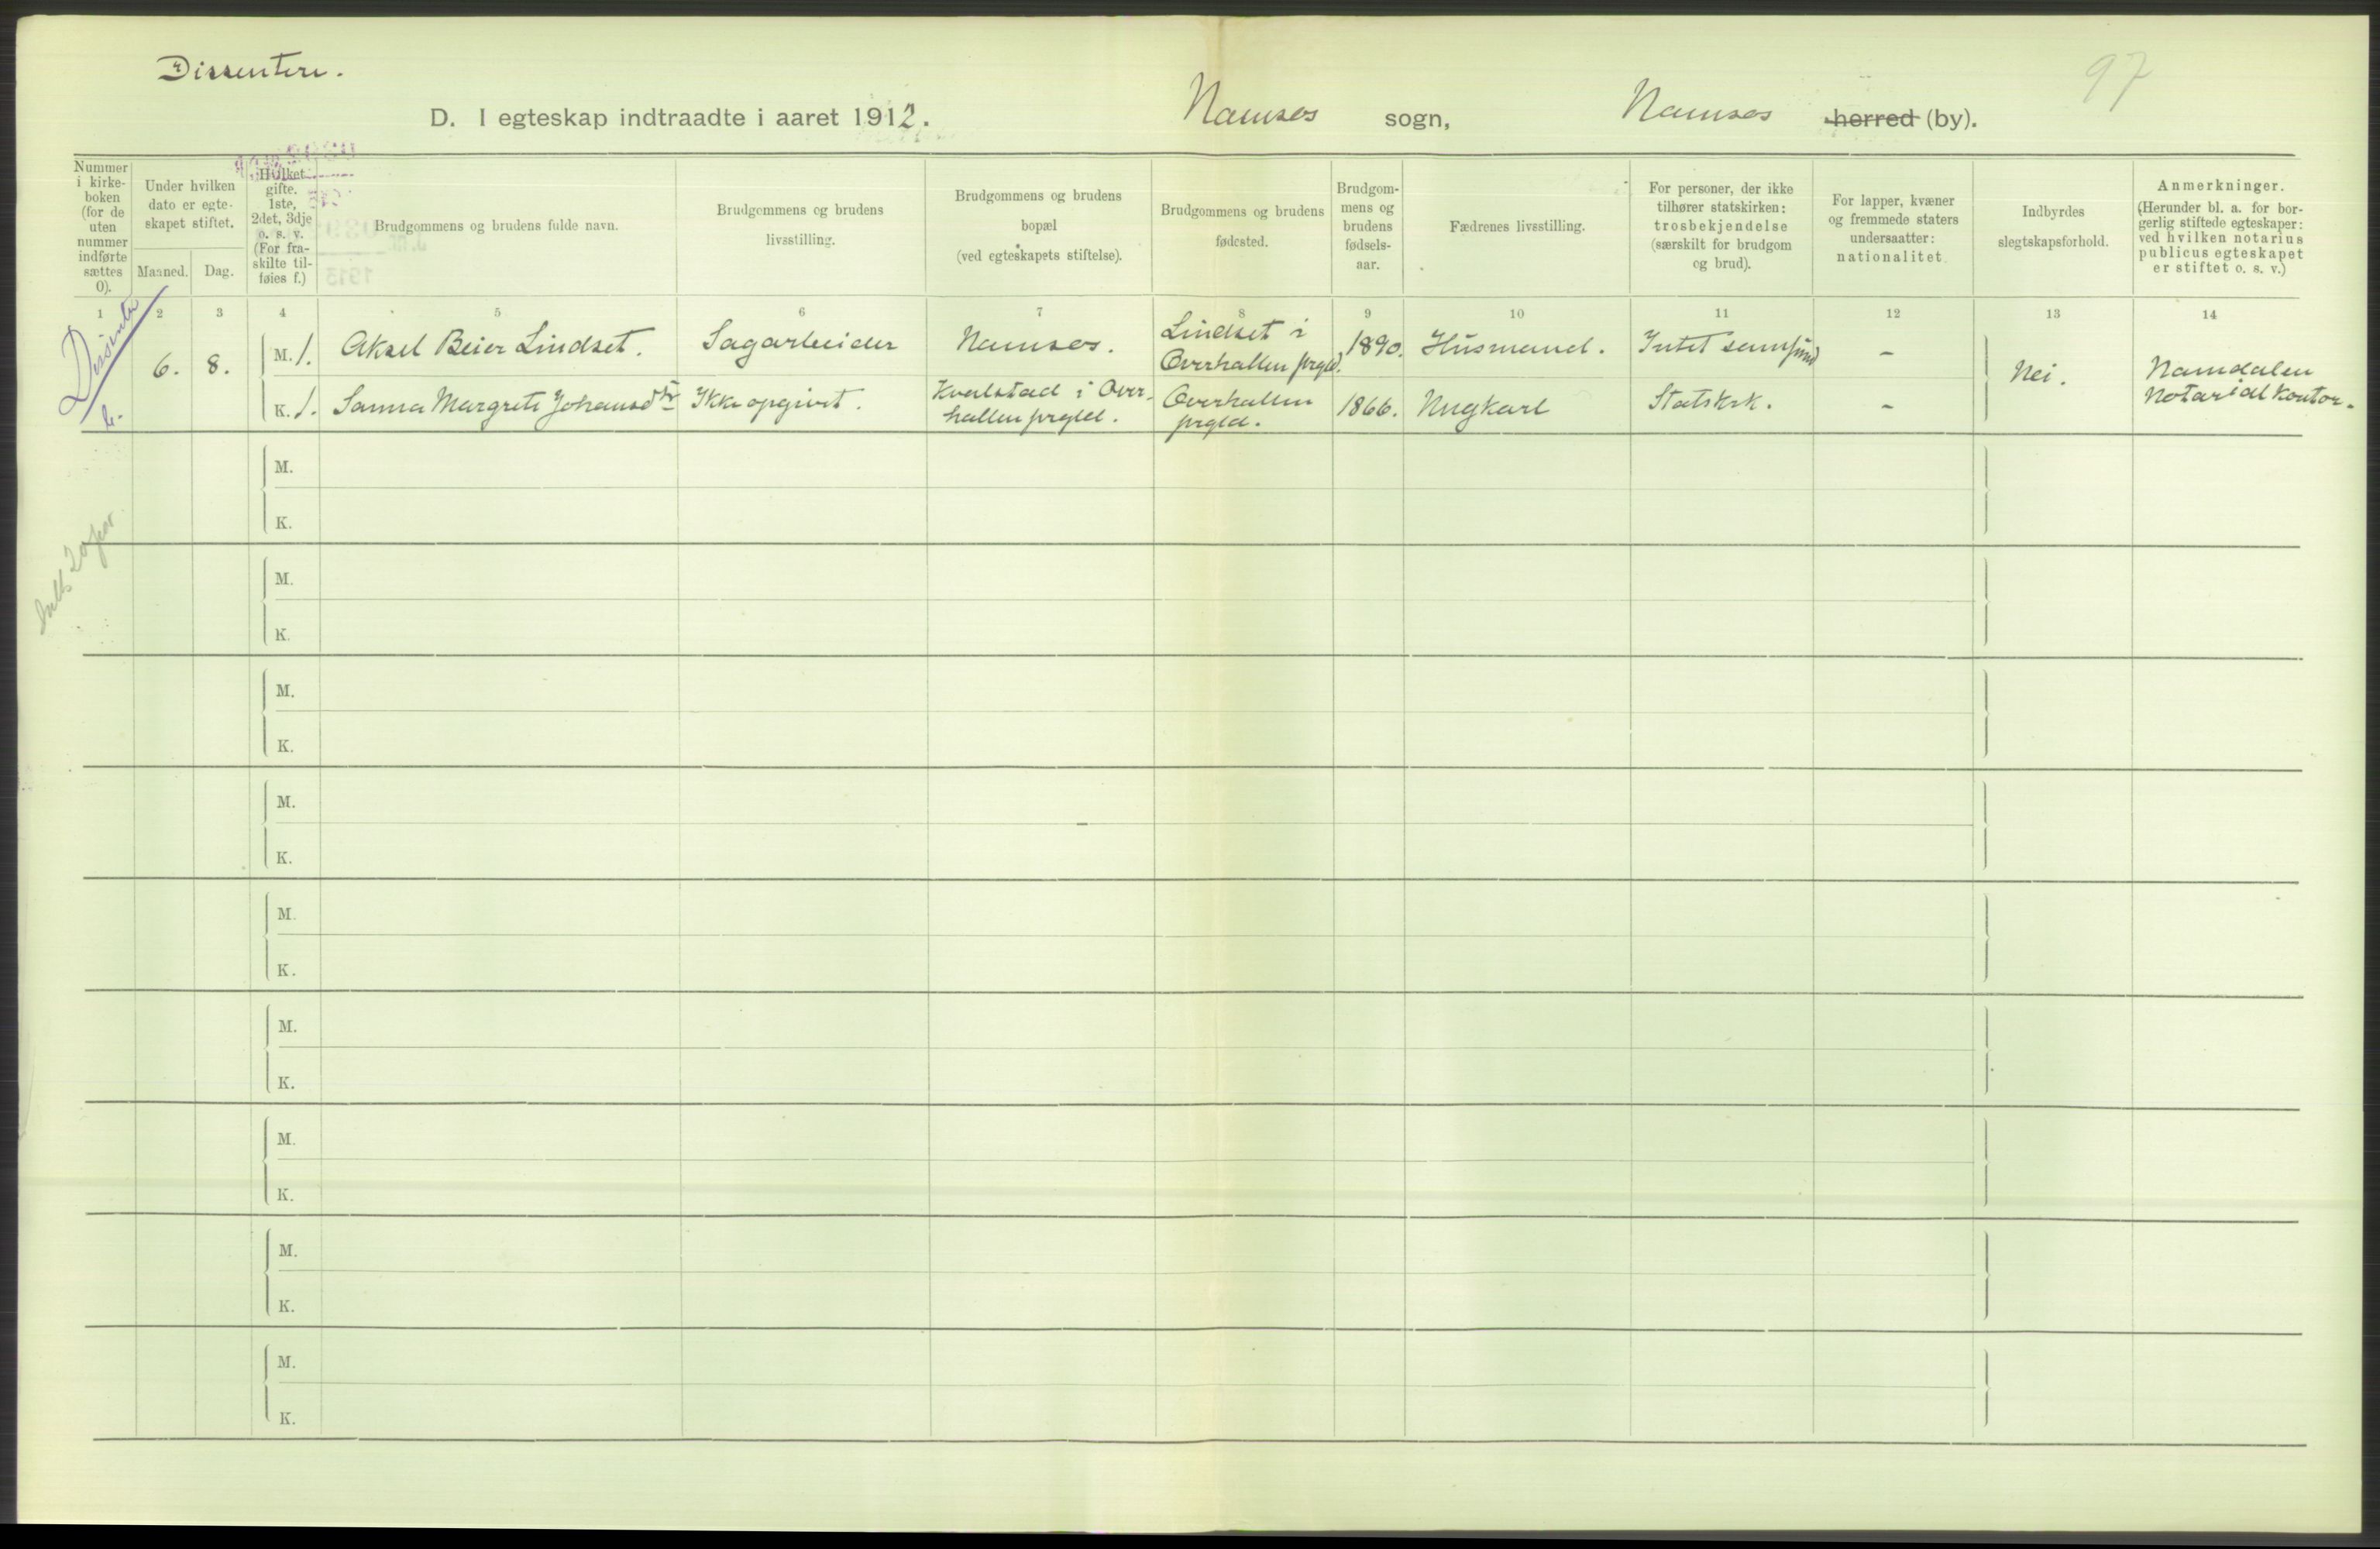 Dissentere.
97
D. I egteskap indtraadte i aaret 1912. Namsos sogn, Namsos herred (by).
Nummer i kirke- boken (for de uten nummer indførte sættes 0).
Under hvilken dato er egte- skapet stiftet.
Maaned. Dag.
Hvilket gifte. 1ste, 2det, 3dje o. s. v. (For fra- skilte til- føies f.)
Brudgommens og brudens fulde navn.
Brudgommens og brudens livsstilling.
Brudgommens og brudens bopæl (ved egteskapets stiftelse).
Brudgommens og brudens fødested.
Brudgom- mens og brudens fødsels- aar.
Fædrenes livsstilling.
For personer, der ikke tilhører statskirken: trosbekjendelse (særskilt for brudgom og brud).
For lapper, kvæner og fremmede staters undersaatter: nationalitet.
Indbyrdes slegtskapsforhold.
Anmerkninger. (Herunder bl. a. for bor- gerlig stiftede egteskaper: ved hvilken notarius publicus egteskapet er stiftet o. s. v.)
1 2 3 4 5 6 7 8 9 10 11 12 13 14
6. 8. M. 1. Aksel Beier Lindset. Sagarbeider Namsos. Lindset i Overhallen prgld. 1890. Husmand. Intet samfund - Nei. Namdalen Notarialkontor.
K. 1. Sanna Margrete Johansdtr Ikke opgivet. Kvalstad i Over- hallen prgld. Overhallen prgld. 1866. Statskrk. -
M.
K.
M.
K.
M.
K.
M.
K.
M.
K.
M.
K.
M.
K.
M.
K.
M.
K.